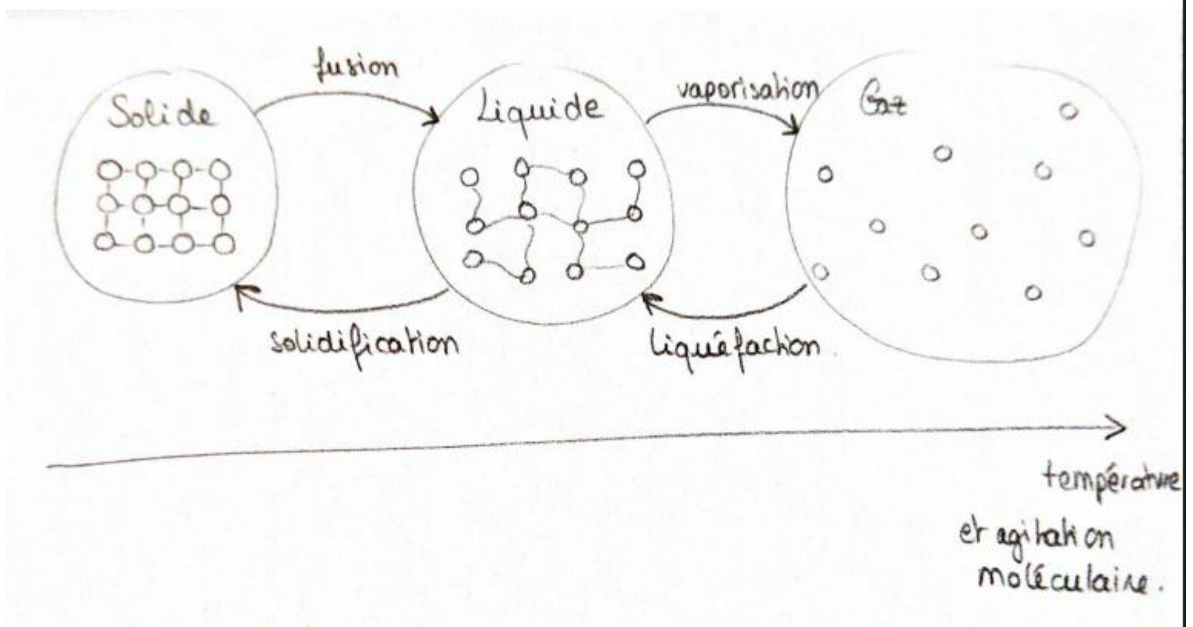 fusion
Solide
Liquide
vaporisation
Gaz
solidification
liquéfaction.
température
et agitation
moléculaire.